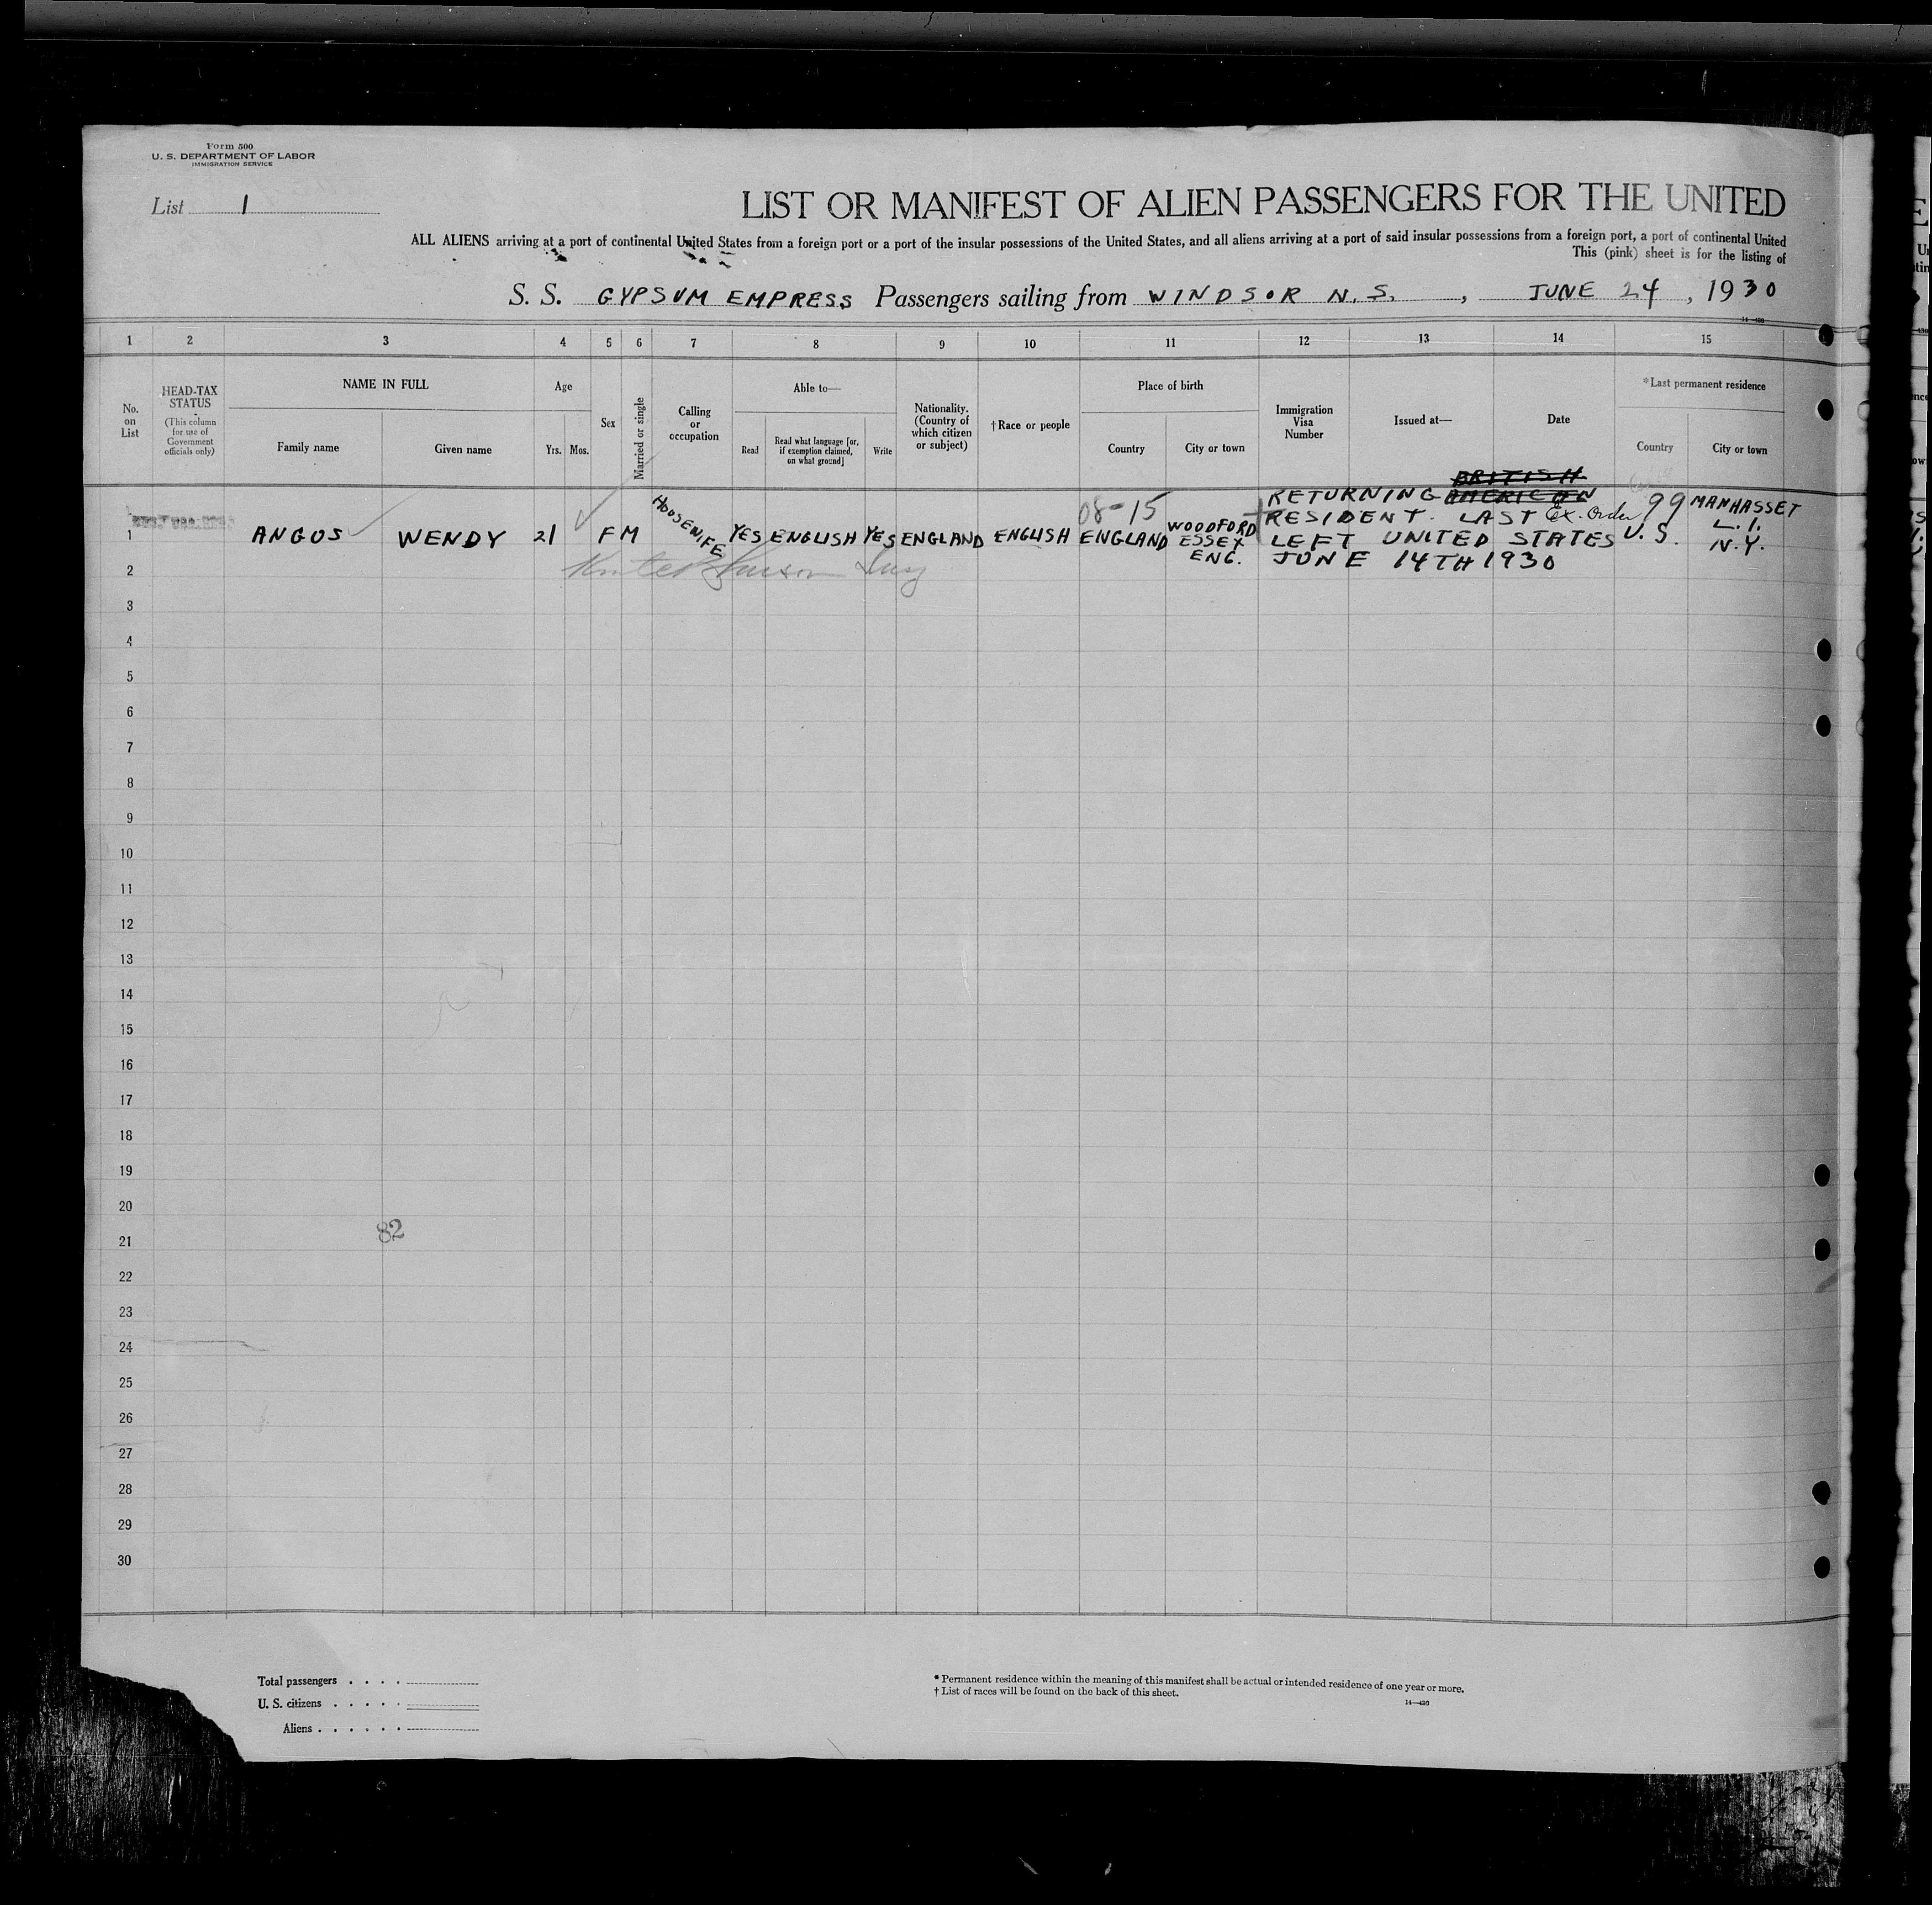 Form 500
U. S. DEPARTMENT OF LABOR
IMMIGRATION SERVICE
List 1
LIST OR MANIFEST OF ALIEN PASSENGERS FOR THE UNITED
ALL ALIENS arriving at a port of continental United States from a foreign port or a port of the insular possessions of the United States, and all aliens arriving at a port of said insular possessions from a foreign port, a port of continental United
This (pink) sheet is for the listing of
S. S. GYPSUM EMPRESS Passengers sailing from WINDSOR N.S., JUNE 24, 1930
1 2 3 4 5 6 7 8 9 10 11 12 13 14 15
No. on List
HEAD-TAX STATUS
(This column for use of Government officials only)
NAME IN FULL
Family name
Given name
Age
Yrs. Mos.
Sex
Married or single
Calling or occupation
Able to—
Read
Read what language [or, if exemption claimed, on what ground]
Write
Nationality. (Country of which citizen or subject)
†Race or people
Place of birth
Country
City or town
Immigration Visa Number
Issued at—
Date
*Last permanent residence
Country
City or town
1 ANGUS WENDY 21 F M HOUSEWIFE YES ENGLISH YES ENGLAND ENGLISH ENGLAND
08-15
WOODFORD
ESSEX
ENG.
BRITISH
RETURNING AMERICAN
RESIDENT. LAST Ex. Order
LEFT UNITED STATES
JUNE 14TH 1930
99
U.S.
MANHASSET
L.I.
N.Y.
2
3
4
5
6
7
8
9
10
11
12
13
14
15
16
17
18
19
20
82
21
22
23
24
25
26
27
28
29
30
Total passengers . . . .
U. S. citizens . . . . .
Aliens . . . . . .
* Permanent residence within the meaning of this manifest shall be actual or intended residence of one year or more.
† List of races will be found on the back of this sheet.